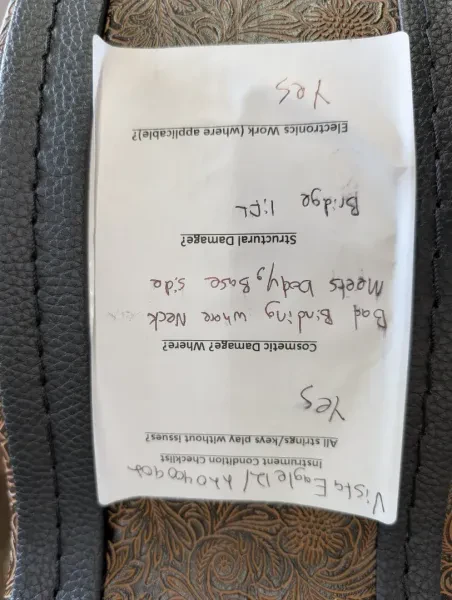 Vista Eagle 12/
Instrument Condition Checklist
All strings/keys play without issues?
Yes
Cosmetic Damage? Where?
Bad Binding where Neck
Meets body, Base side
Structural Damage?
Bridge lift
Electronics Work (where applicable)?
Yes